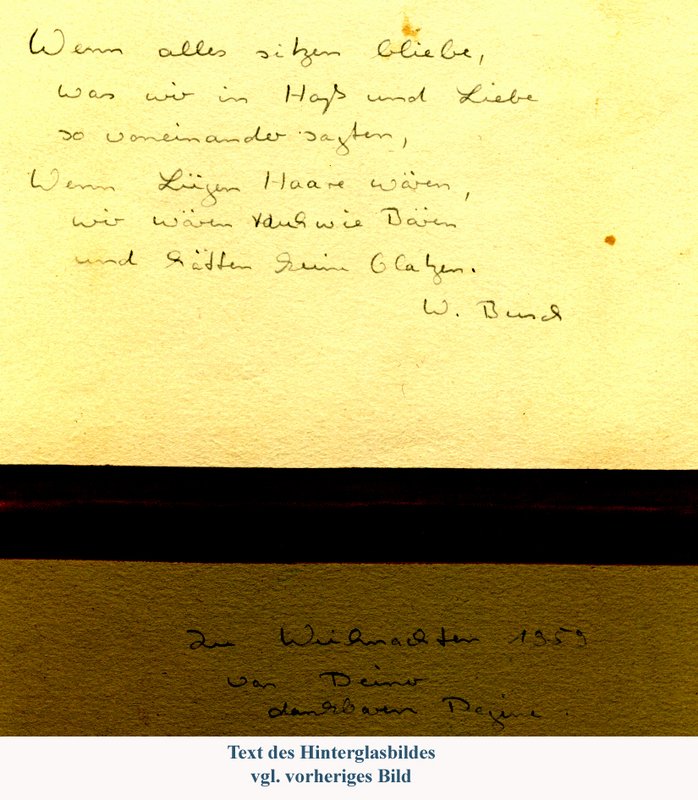 Wenn alles sitzen bliebe,
was wir in Haß und Liebe
so voneinander sagten,
Wenn Lügen Haare wären,
wir wären rauh wie Bären
und hätten keine Glatzen.
W. Busch
Zu Weihnachten 1959
von Deiner
dankbaren
Text des Hinterglasbildes
vgl. vorheriges Bild